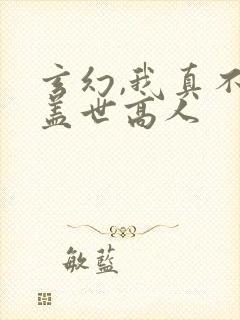 玄幻,我真不
盖世高人
敏蓝